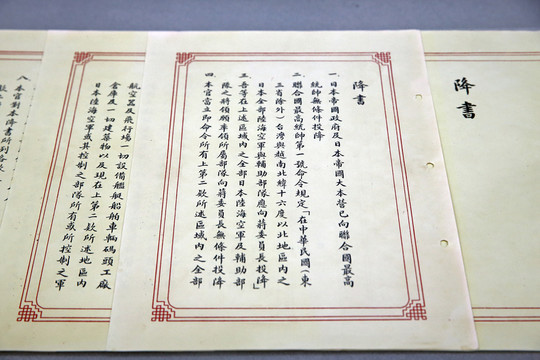 降書
降書
一、日本帝國政府及日本帝國大本營已向聯合國最高
統帥無條件投降
二、聯合國最高統帥第一號命令規定「在中華民國(東
三省除外)台灣與越南北緯十六度以北地區內之
日本全部陸海空軍與輔助部隊應向蔣委員長投降」
三、吾等在上述區域內之全部日本陸海空軍及輔助部
隊之將領願率領所屬部隊向蔣委員長無條件投降
四、本官當立即命令所有上第二款所述區域內之全部
航空器及飛行場一切設備艦艇船舶車輛碼頭工廠
倉庫及一切建築物以及現在上第二款所述地區內
日本陸海空軍或其控制之部隊所有或所控制之軍
八、本官對本降書所列各款